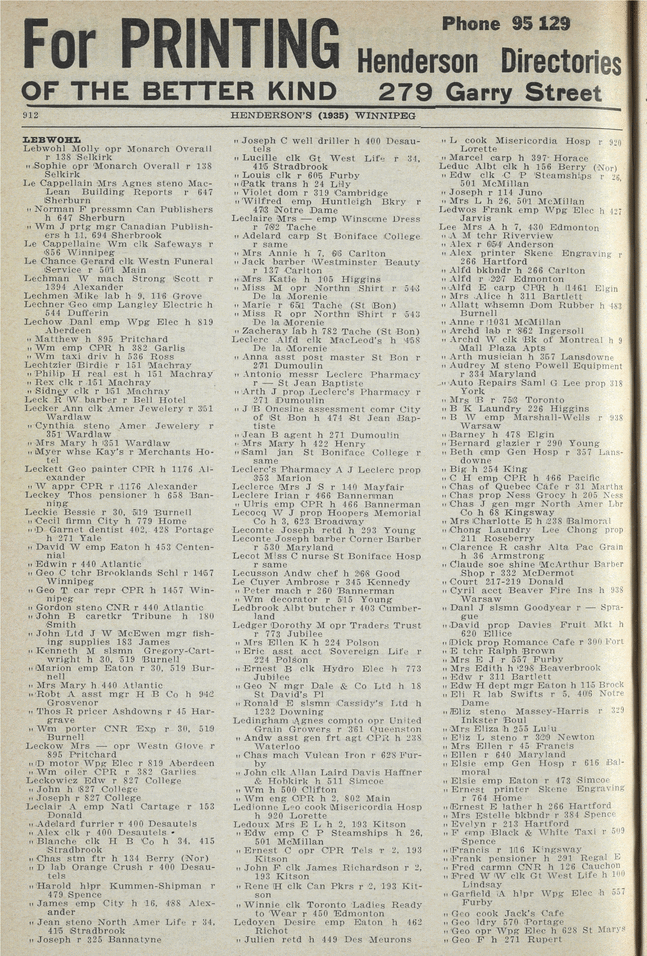 For PRINTING
Phone 95 129
Henderson Directories
OF THE BETTER KIND 279 Garry Street
912 HENDERSON'S (1935) WINNIPEG
LEBWOHL
Lebwohl Molly opr Monarch Overall
r 138 Selkirk
" Sophie opr Monarch Overall r 138
Selkirk
Le Cappelain Mrs Agnes steno Mac-
Lean Building Reports r 647
Sherburn
" Norman F pressmn Can Publishers
h 647 Sherburn
" Wm J prtg mgr Canadian Publish-
ers h 11, 694 Sherbrook
Le Cappellaine Wm clk Safeways r
856 Winnipeg
Le Chance Gerard clk Westn Funeral
Service r 501 Main
Lechman W mach Strong Scott r
1394 Alexander
Lechmen Mike lab h 9, 116 Grove
Lechner Geo emp Langley Electric h
544 Dufferin
Lechow Danl emp Wpg Elec h 819
Aberdeen
" Matthew h 895 Pritchard
" Wm emp CPR h 382 Garlies
" Wm taxi driv h 536 Ross
Lechtzier Birdie r 151 Machray
" Philip H real est h 151 Machray
" Rex clk r 151 Machray
" Sidney clk r 151 Machray
Leck R W barber r Bell Hotel
Lecker Ann clk Amer Jewelery r 351
Wardlaw
" Cynthia steno Amer Jewelery r
351 Wardlaw
" Mrs Mary h 351 Wardlaw
" Myer whse Kay's r Merchants Ho-
tel
Leckett Geo painter CPR h 1176 Al-
exander
" W appr CPR r 1176 Alexander
Leckey Thos pensioner h 658 Ban-
ning
Leckie Bessie r 30, 519 Burnell
" Cecil firmn City h 779 Home
" D Garnet dentist 402, 428 Portage
h 271 Yale
" David W emp Eaton h 453 Centen-
nial
" Edwin r 440 Atlantic
" Geo C tchr Brooklands Schl r 1457
Winnipeg
" Geo T car repr CPR h 1457 Win-
nipeg
" Gordon steno CNR r 440 Atlantic
" John B caretkr Tribune h 180
Smith
" John Ltd J W McEwen mgr fish-
ing supplies 183 James
" Kenneth M slsmn Gregory-Cart-
wright h 30, 519 Burnell
" Marion emp Eaton r 30, 519 Bur-
nell
" Mrs Mary h 440 Atlantic
" Robt A asst mgr H B Co h 942
Grosvenor
" Thos R pricer Ashdowns r 45 Har-
grave
" Wm porter CNR Exp r 30, 519
Burnell
Leckow Mrs — opr Westn Glove r
895 Pritchard
" D motor Wpg Elec r 819 Aberdeen
" Wm oiler CPR r 382 Garlies
Leckowicz Edw r 827 College
" John h 827 College
" Joseph r 827 College
Leclair A emp Natl Cartage r 153
Donald
" Adelard furrier r 400 Desautels
" Alex clk r 400 Desautels
" Blanche clk H B Co h 34, 415
Stradbrook
" Chas stm ftr h 134 Berry (Nor)
" D lab Orange Crush r 400 Desau-
tels
" Harold hlpr Kummen-Shipman r
479 Spence
" James emp City h 16, 488 Alex-
ander
" Jean steno North Amer Life r 34,
415 Stradbrook
" Joseph r 325 Bannatyne
" Joseph C well driller h 400 Desau-
tels
" Lucille clk Gt West Life r 34,
415 Stradbrook
" Louis clk r 605 Furby
" Patk trans h 24 Lily
" Violet dom r 319 Cambridge
" Wilfred emp Huntleigh Bkry r
473 Notre Dame
Leclaire Mrs — emp Winsome Dress
r 782 Tache
" Adelard carp St Boniface College
r same
" Mrs Annie h 7, 66 Carlton
" Jack barber Westminster Beauty
r 137 Carlton
" Mrs Katie h 105 Higgins
" Miss M opr Northn Shirt r 543
De la Morenie
" Marie r 651 Tache (St Bon)
" Miss R opr Northn Shirt r 543
De la Morenie
" Zacheray lab h 782 Tache (St Bon)
Leclerc Alfd clk MacLeod's h 458
De la Morenie
" Anna asst post master St Bon r
271 Dumoulin
" Antonio messr Leclerc Pharmacy
r — St Jean Baptiste
" Arth J prop Leclerc's Pharmacy r
271 Dumoulin
" J B Onesine assessment comr City
of St Bon h 474 St Jean Bap-
tiste
" Jean B agent h 271 Dumoulin
" Mrs Mary h 422 Henry
" Saml jan St Boniface College r
same
Leclerc's Pharmacy A J Leclerc prop
353 Marion
Leclerce Mrs J S r 140 Mayfair
Leclere Irian r 466 Bannerman
" Ulris emp CPR h 466 Bannerman
Lecocq W J prop Hoopers Memorial
Co h 3, 623 Broadway
Lecomte Joseph retd h 293 Young
Leconte Joseph barber Corner Barber
r 530 Maryland
Lecot Miss C nurse St Boniface Hosp
r same
Lecusson Andw chef h 268 Good
Le Cuyer Ambrose r 345 Kennedy
" Peter mach r 260 Bannerman
" Wm decorator r 515 Young
Ledbrook Albt butcher r 403 Cumber-
land
Ledger Dorothy M opr Traders Trust
r 773 Jubilee
" Mrs Ellen K h 224 Polson
" Eric asst acct Sovereign Life r
224 Polson
" Ernest B clk Hydro Elec h 773
Jubilee
" Geo N mgr Dale & Co Ltd h 18
St David's Pl
" Ronald E slsmn Cassidy's Ltd h
1232 Downing
Ledingham Agnes compto opr United
Grain Growers r 361 Queenston
" Andw asst gen frt agt CPR h 238
Waterloo
" Chas mach Vulcan Iron r 628 Fur-
by
" John clk Allan Laird Davis Haffner
& Hobkirk h 511 Simcoe
" Wm h 500 Clifton
" Wm eng CPR h 2, 802 Main
Ledionne Leo cook Misericordia Hosp
h 920 Lorette
Ledoux Mrs E L h 2, 193 Kitson
" Edw emp C P Steamships h 26,
501 McMillan
" Ernest C opr CPR Tels r 2, 193
Kitson
" John F clk James Richardson r 2,
193 Kitson
" Rene H clk Can Pkrs r 2, 193 Kit-
son
" Winnie clk Toronto Ladies Ready
to Wear r 450 Edmonton
Ledoyen Desire emp Eaton h 462
Richot
" Julien retd h 449 Des Meurons
" L cook Misericordia Hosp r 920
Lorette
" Marcel carp h 397 Horace
Leduc Albt clk h 156 Berry (Nor)
" Edw clk C P Steamships r 26,
501 McMillan
" Joseph r 114 Juno
" Mrs L h 26, 501 McMillan
Ledwos Frank emp Wpg Elec h 427
Jarvis
Lee Mrs A h 7, 430 Edmonton
" A M tchr Riverview
" Alex r 654 Anderson
" Alex printer Skene Engraving r
266 Hartford
" Alfd bkbndr h 266 Carlton
" Alfd r 227 Edmonton
" Alfd E carp CPR h 1461 Elgin
" Mrs Alice h 311 Bartlett
" Allatt whsemn Dom Rubber h 483
Burnell
" Anne r 1031 McMillan
" Archd lab r 862 Ingersoll
" Archd W clk Bk of Montreal h 9
Mall Plaza Apts
" Arth musician h 357 Lansdowne
" Audrey M steno Powell Equipment
r 334 Maryland
" Auto Repairs Saml G Lee prop 318
York
" Mrs B r 753 Toronto
" B K Laundry 226 Higgins
" B W emp Marshall-Wells r 938
Warsaw
" Barney h 478 Elgin
" Bernard glazier r 290 Young
" Beth emp Gen Hosp r 357 Lans-
downe
" Big h 254 King
" C H emp CPR h 466 Pacific
" Chas of Quebec Cafe r 31 Martha
" Chas prop Ness Grocy h 205 Ness
" Chas J gen mgr North Amer Lbr
Co h 68 Kingsway
" Mrs Charlotte E h 238 Balmoral
" Chong Laundry Lee Chong prop
211 Roseberry
" Clarence R cashr Alta Pac Grain
h 36 Armstrong
" Claude soe shine McArthur Barber
Shop r 332 McDermot
" Court 217-219 Donald
" Cyril acct Beaver Fire Ins h 938
Warsaw
" Danl J slsmn Goodyear r — Spra-
gue
" David prop Davies Fruit Mkt h
620 Ellice
" Dick prop Romance Cafe r 300 Fort
" E tchr Ralph Brown
" Mrs E J r 557 Furby
" Mrs Edith h 298 Beaverbrook
" Edw r 311 Bartlett
" Edw H dept mgr Eaton h 115 Brock
" Eli R lab Swifts r 5, 406 Notre
Dame
" Eliz steno Massey-Harris r 329
Inkster Boul
" Mrs Eliza h 255 Lulu
" Eliz L steno r 329 Newton
" Mrs Ellen r 45 Francis
" Ellen r 640 Maryland
" Elsie emp Gen Hosp r 616 Bal-
moral
" Elsie emp Eaton r 473 Simcoe
" Ernest printer Skene Engraving
r 764 Home
" Ernest E lather h 266 Hartford
" Mrs Estelle bkbndr r 384 Spence
" Evelyn r 213 Hartford
" F emp Black & White Taxi r 509
Spence
" Francis r 116 Kingsway
" Frank pensioner h 291 Regal E
" Fred carmn CNR h 126 Cauchon
" Fred W W clk Gt West Life h 100
Lindsay
" Garfield A hlpr Wpg Elec h 557
Furby
" Geo cook Jack's Cafe
" Geo ldry 570 Portage
" Geo opr Wpg Elec h 628 St Marys
" Geo F h 271 Rupert